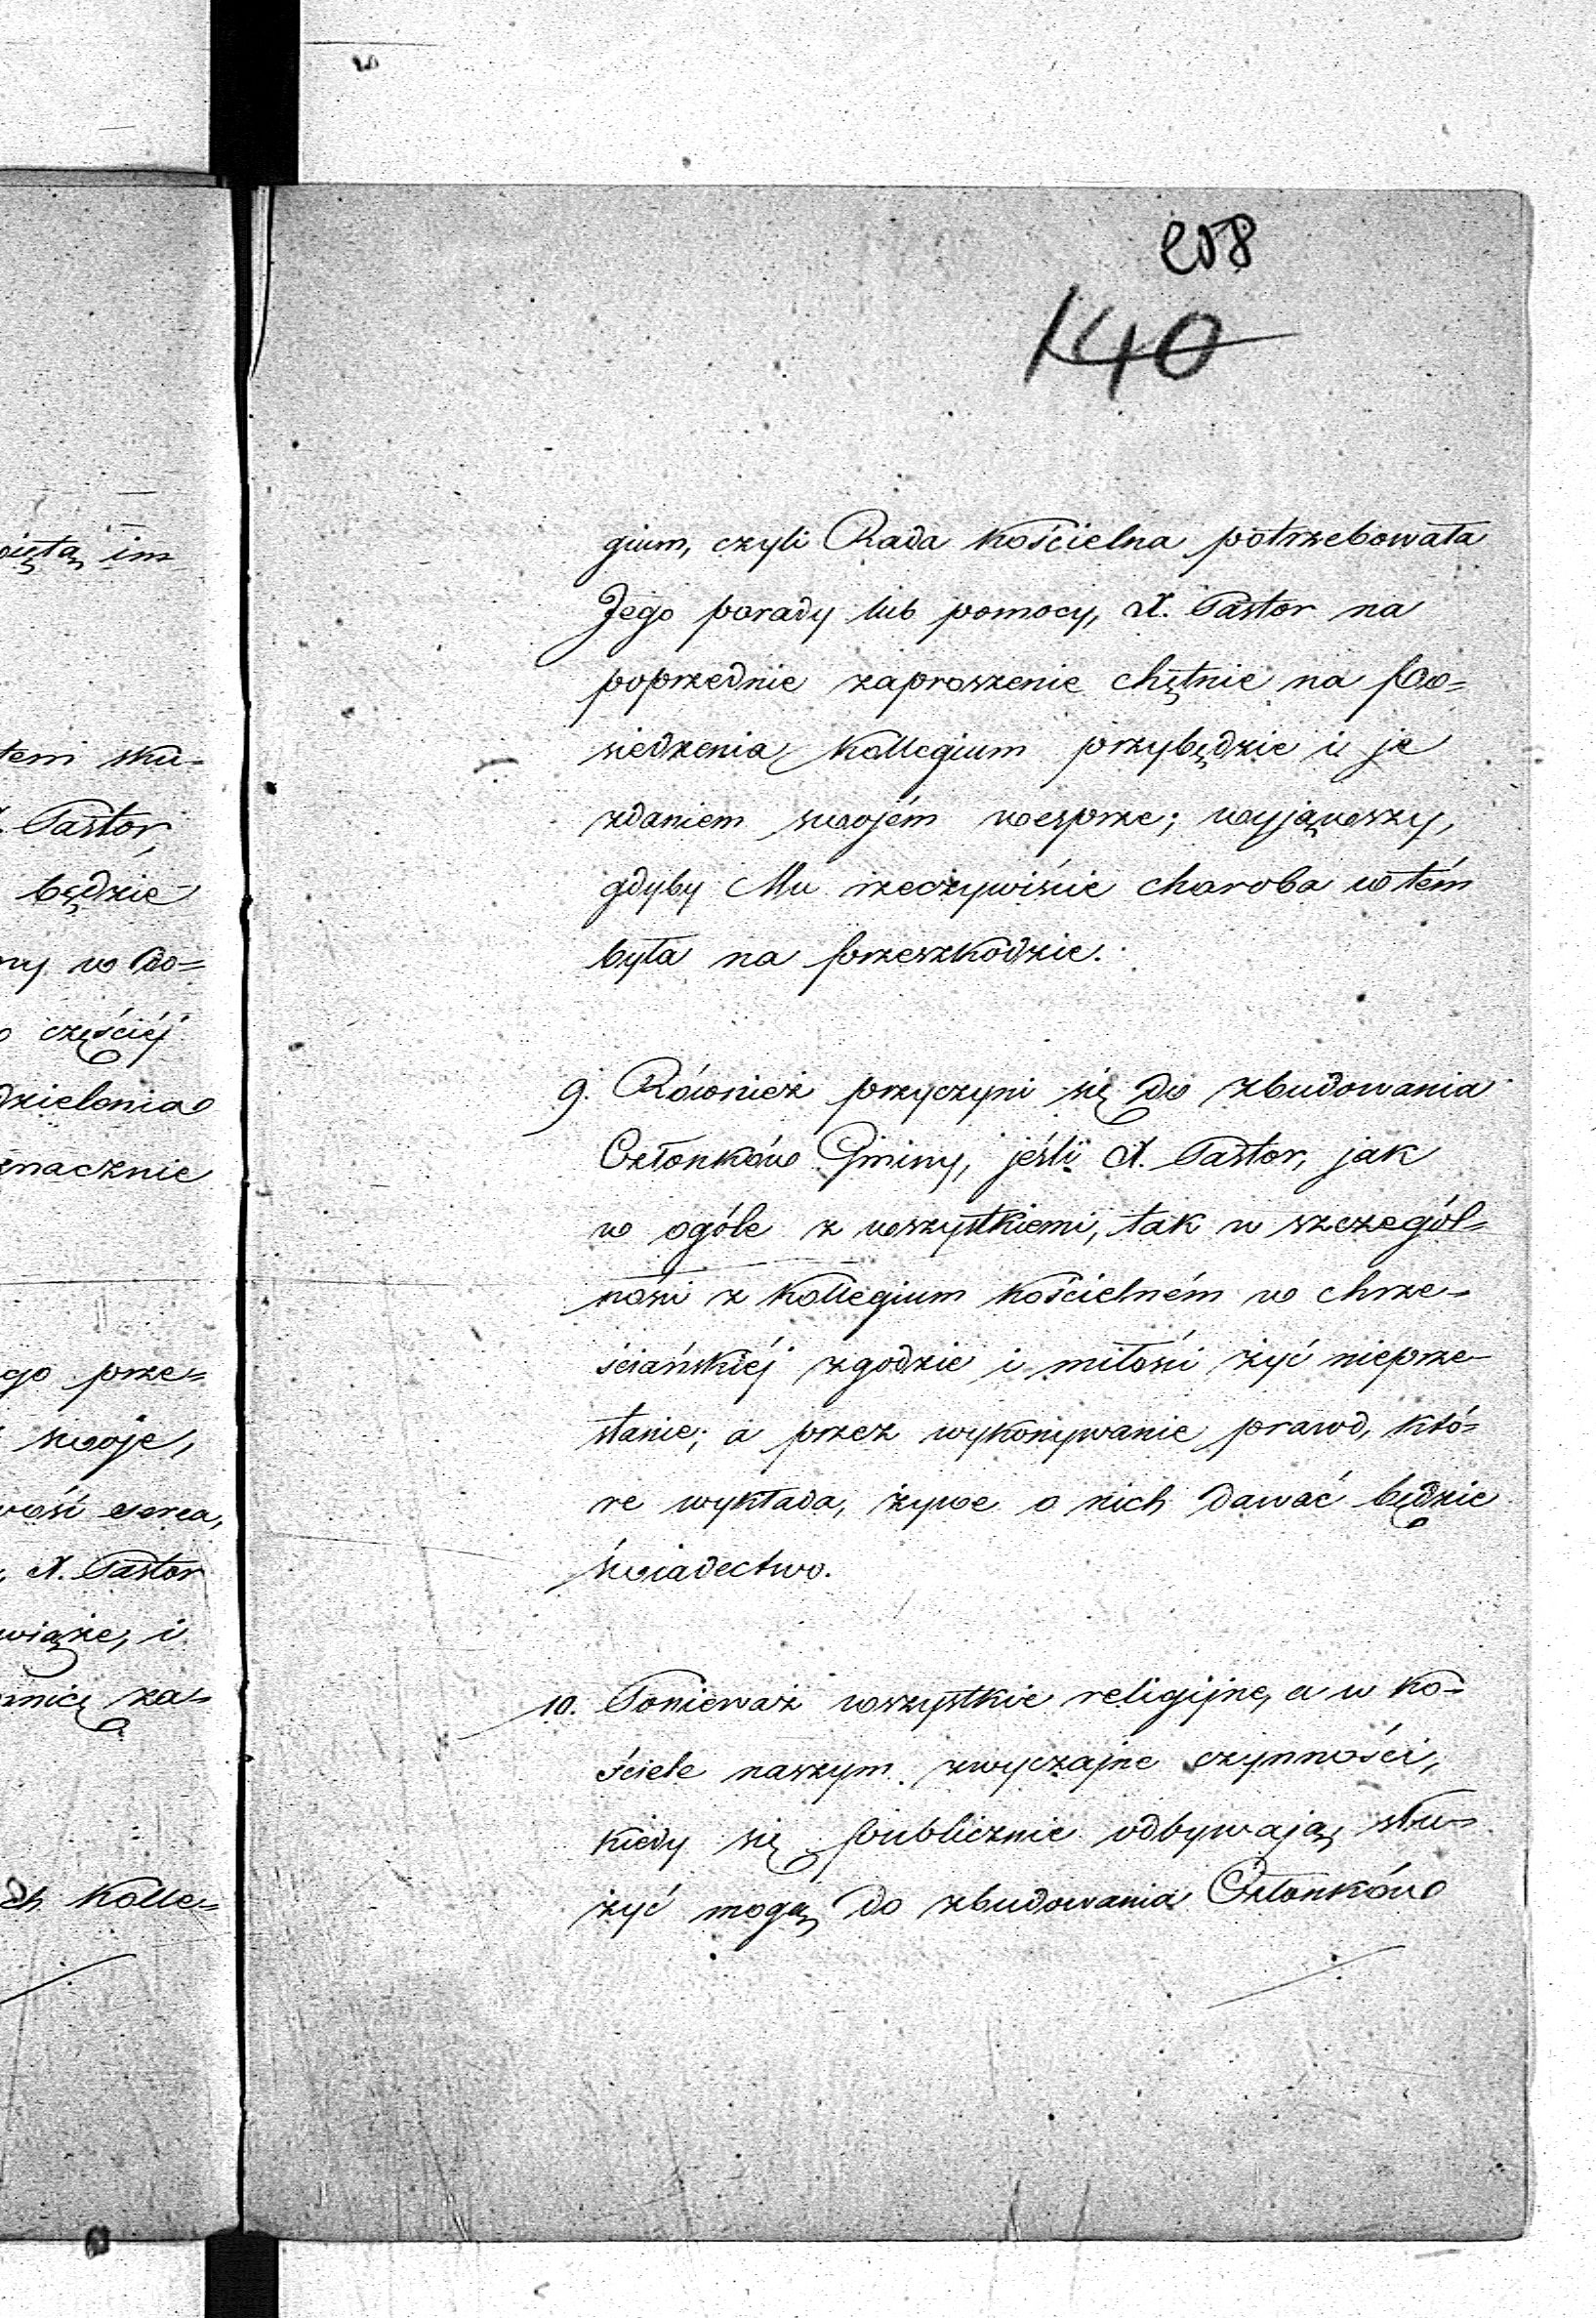 208
140
gium, czyli Rada kościelna potrzebowała
Jego porady lub pomocy, X. Pastor na
poprzednie zaproszenie chętnie na po=
siedzenia Kollegium przybędzie i je
zdaniem swojém wesprze; wyjąwszy,
gdyby Mu rzeczywiście choroba w tém
była na przeszkodzie.
9. Również przyczyni się do zbudowania
Członków Gminy, jeśli X. Pastor, jak
w ogóle z wszystkiemi, tak w szczegól=
ności z Kollegium kościelném w chrze=
ściańskiéj zgodzie i miłości żyć nieprze=
stanie; a przez wykonywanie prawd, któ=
re wykłada, żywe o nich dawać będzie
świadectwo.
10. Ponieważ wszystkie religijne, a w Ko=
ściele naszym zwyczajne czynności,
kiedy się publicznie odbywają, słu=
żyć mogą do zbudowania Członków
im
tem sku=
Pastor,
będzie
w do=
częściéj
znacznie
prze=
swoje,
serca,
X. Pastor
i
za=
Kolle=